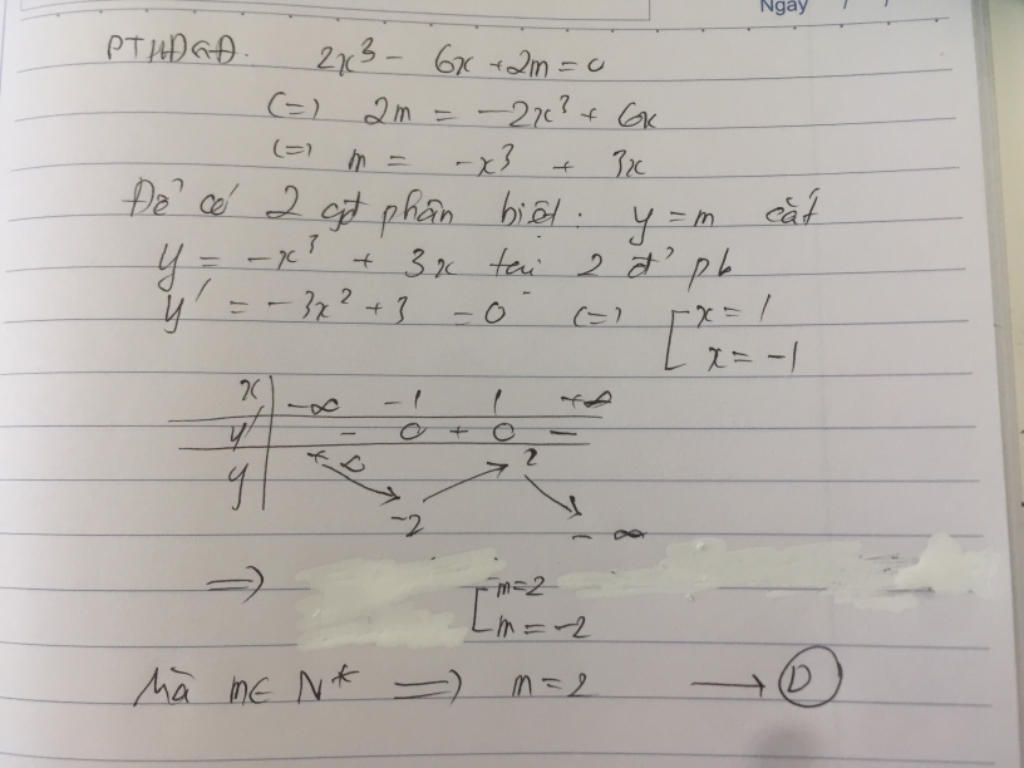 Ngày / /
PTHĐGĐ. 2x³ - 6x + 2m = 0
(=) 2m = -2x³ + 6x
(=) m = -x³ + 3x
Để có 2 gđ phân biệt. y = m cắt
y = -x³ + 3x tại 2 đ' pb
y' = -3x² + 3 = 0 (=) [ x = 1
x = -1
x -∞ -1 1 +∞
y' - 0 + 0 -
+∞ 2
y
-2 -∞
=) [ m=2
m = -2
Mà m∈ N* =) m = 2 → D